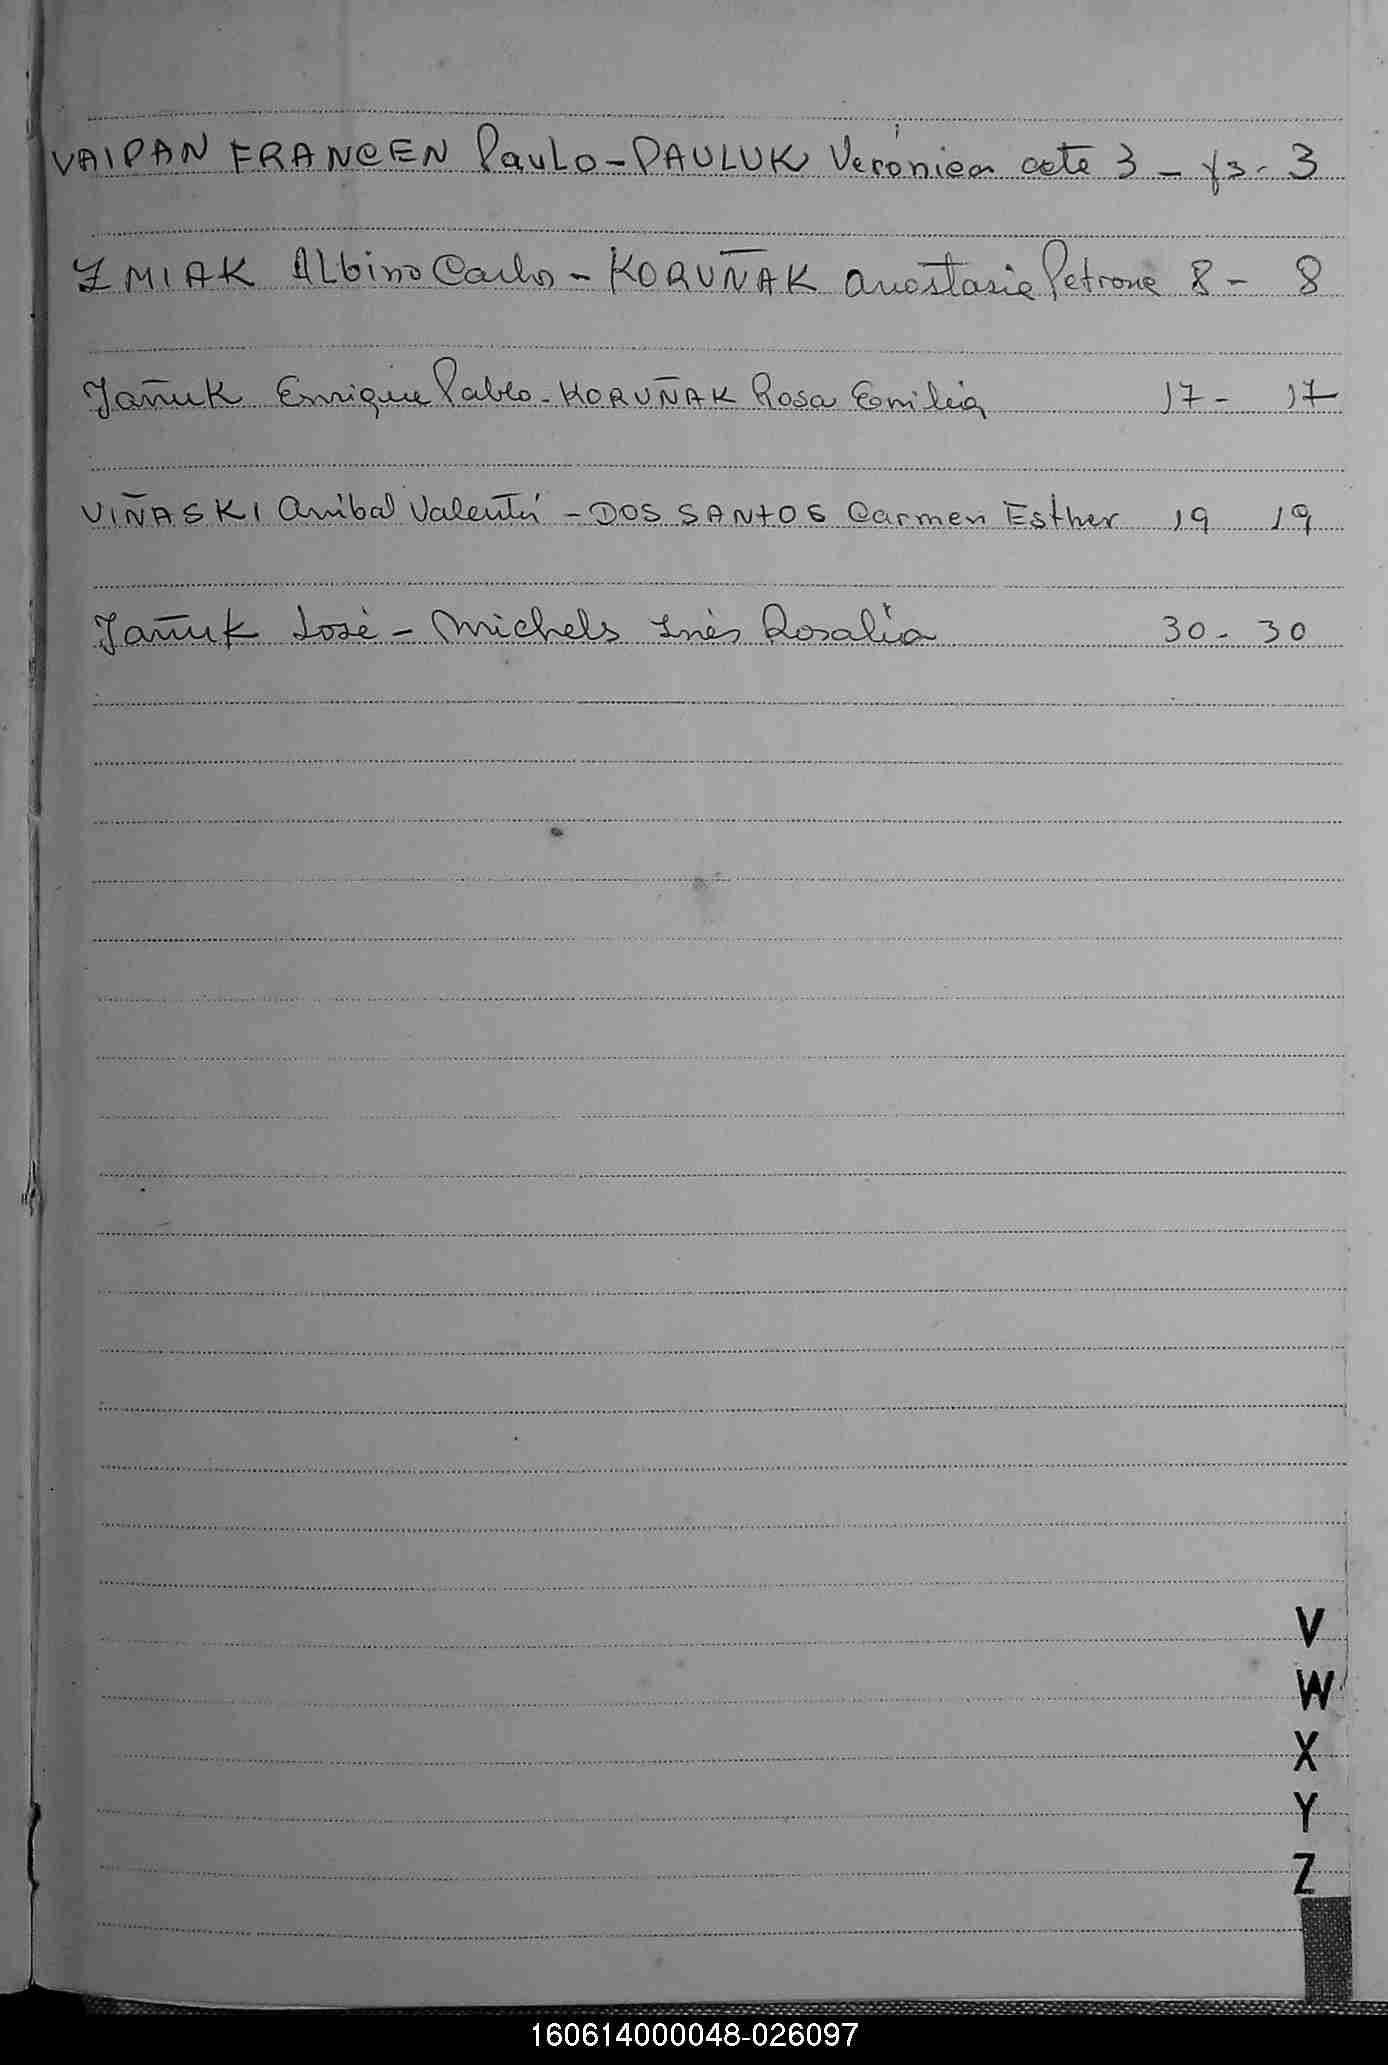 VAIPAN FRANCEN Paulo - PAULUK Verónica acta 3 - fs. 3
ZMIAK Albino Carlos - KORUÑAK Anastasia Petrona 8 - 8
Yañuk Enrique Pablo - KORUÑAK Rosa Emilia 17 - 17
VIÑASKI Anibal Valentín - DOS SANTOS Carmen Esther 19 19
Yañuk José - Michels Inés Rosalía 30 - 30
V
W
X
Y
Z
160614000048-026097